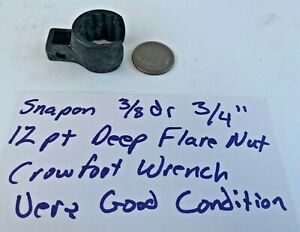 Snapon 3/8 dr 3/4"
12 pt Deep Flare Nut
Crowfoot Wrench
Very Good Condition